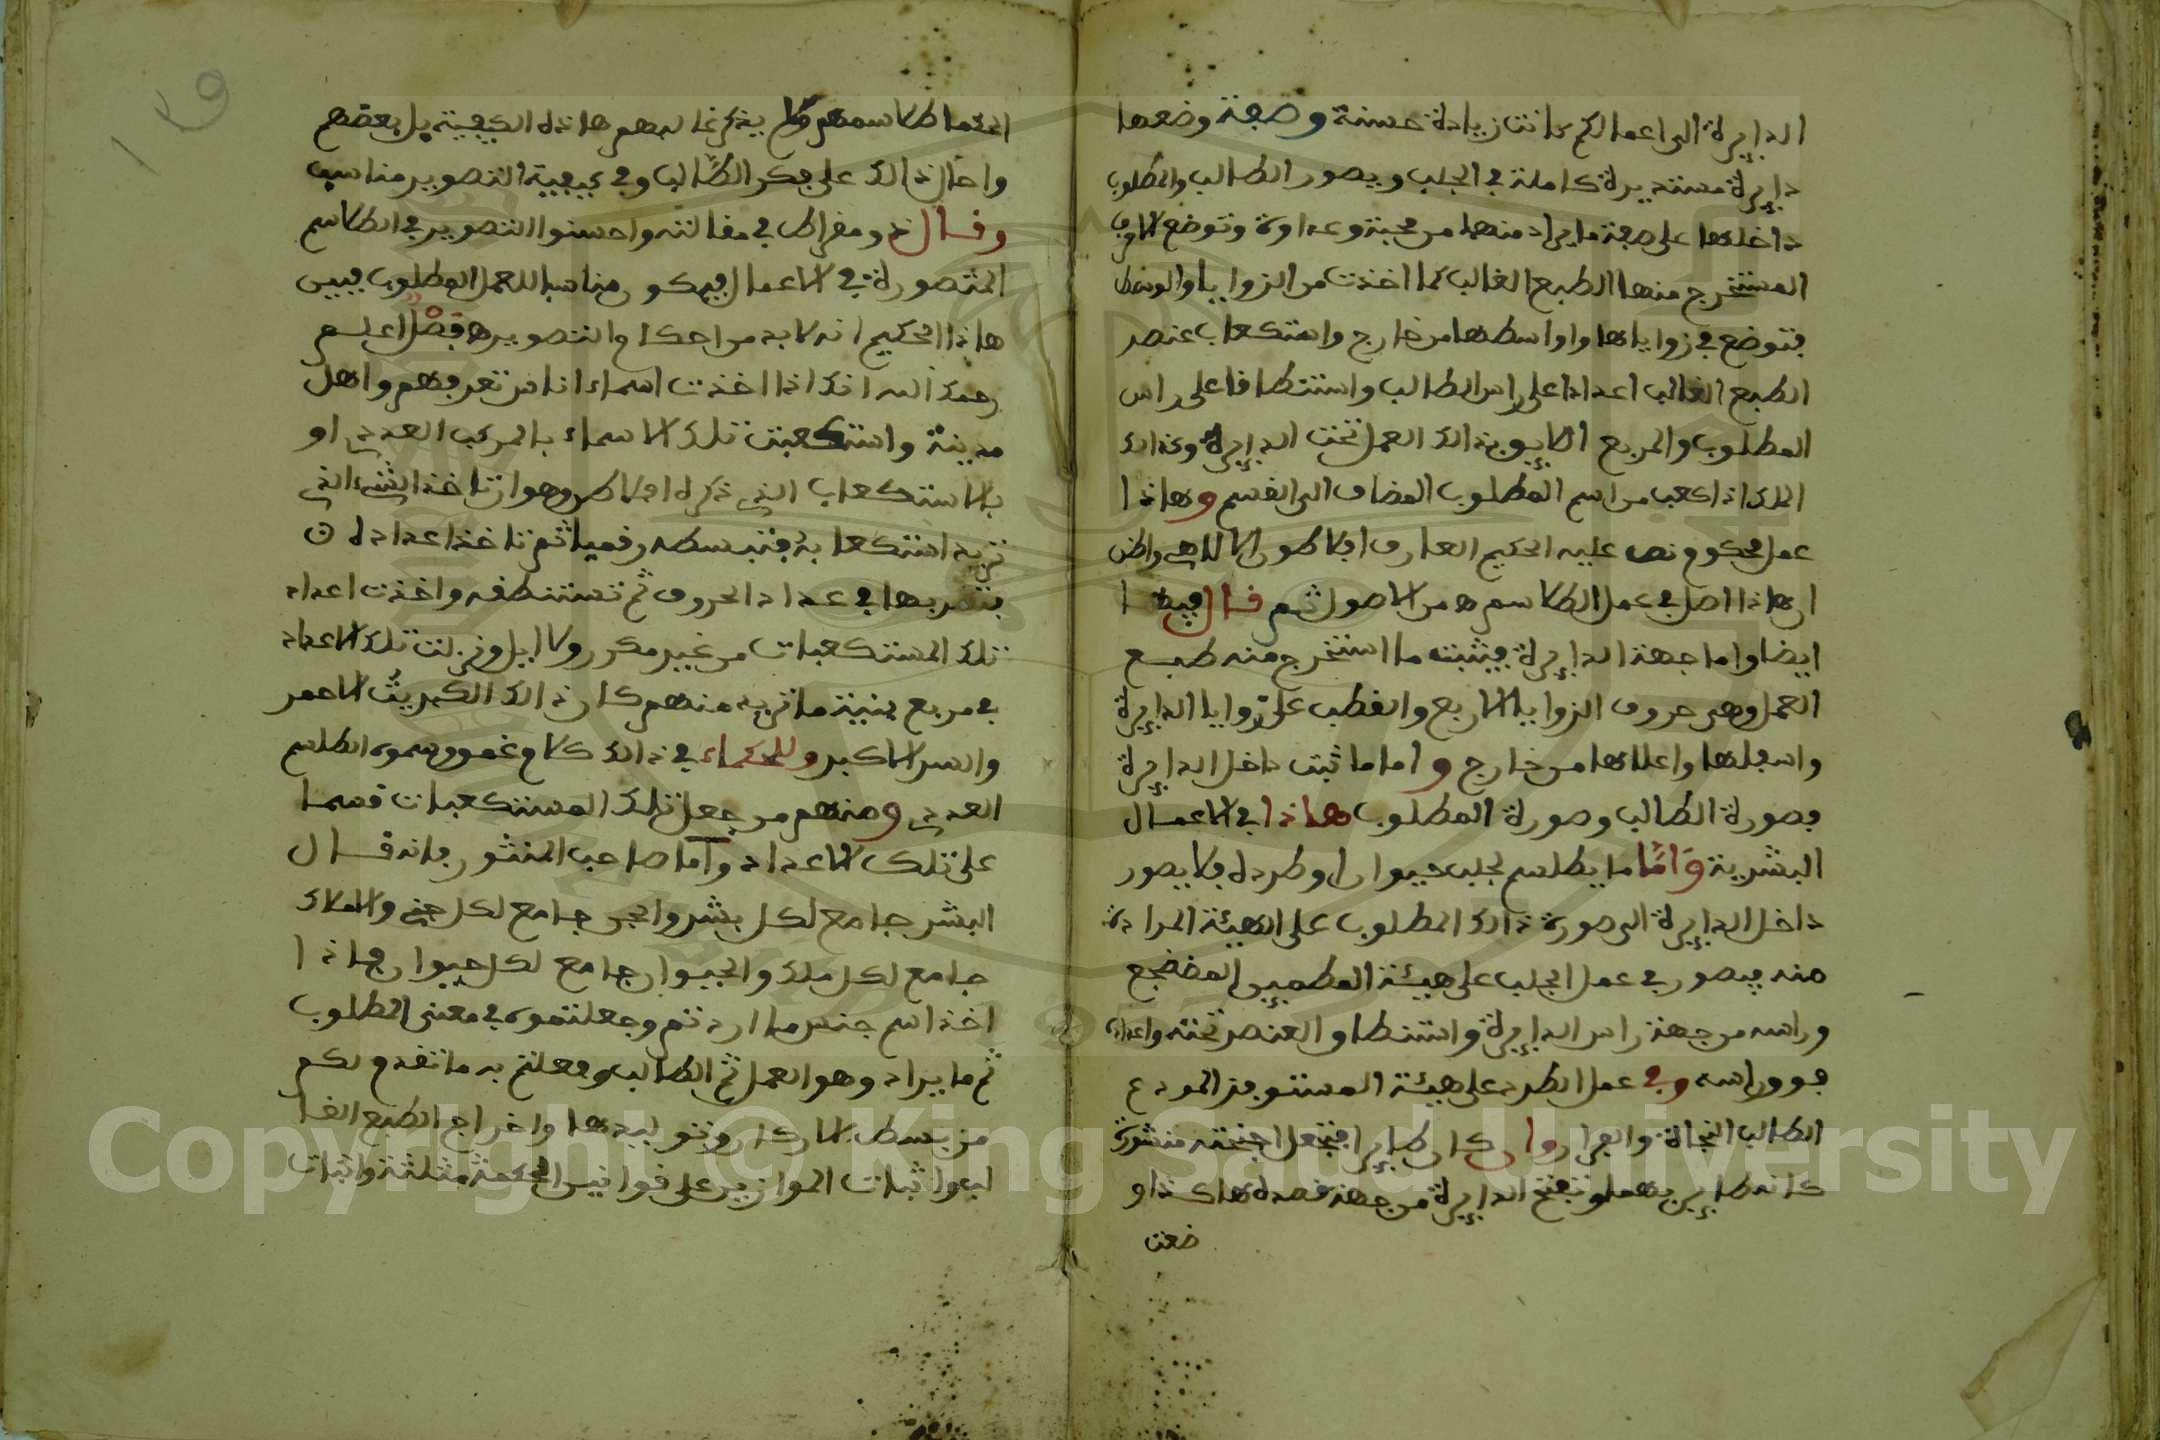 الدايرة الى اعمالكم كانت زيادة حسنة وصفة وضعها
دايرة مستديرة كاملة في الجلب ويصور الطالب والمطلوب
داخلها على صفة ما يراد منهما من محبة وعداوة وتوضع الاحرف
المستخرج منها الطبع الغالب كما اخذت من الزوايا والوسط
فتوضع في زواياها واواسطها من خارج واستكعاب عنصر
الطبع الغالب اعدادا على راس الطالب واستنطاقا على راس
المطلوب والمربع بذالك العمل تحت الدايرة وكذالك
الملك اذا كعب من اسم المطلوب المضاف الى القسم وهاذا
عمل محكوم نص عليه الحكيم العارف افلاطون الالاهي واظن
ان هاذا اصل في عمل الطلاسم من الاصول ثم قال فيها
ايضا واما جهة الدايرة فيثبت ما استخرج منه طبع
العمل وهي حروف الزوايا الاربع والقطب على زوايا الدايرة
واسفلها واعلاها من خارج واما ما ثبت داخل الدايرة
فصورة الطالب وصورة المطلوب هاذا في الاعمال
البشرية واما ما يطلسم لجلب حيوان او طرده فلا يصور
داخل الدايرة الى صورة ذالك المطلوب على الهيئة المرادة
منه فيصور في عمل الجلب على هيئة المطمين المضجع
وراسه من جهة راس الدايرة واستنطاق العنصر تحته واعداده
فوق راسه وفي عمل الطرد على هيئة المستوفز المودع
الطالب النجاة والفرار وان كان طايرا فتجعل اجنحته منشورة
كانه طاير بهما وتفتح الدايرة من جهة قصده هاكذا و
ضعت
الحكما طلاسمهم ولم يذكر غالبهم هاذه الكيفية بل بعضهم
واحال ذالك على فكر الطالب وفي كيفية التصوير مناسب
وقال ذومقراط في مقالته واحسنوا التصوير في الطلاسم
المتصورة في الاعمال فيكون مناسبا للعمل المطلوب فبين
هاذا الحكيم انه لابد من احكام التصوير فصل اعلم
رحمك الله انك اذا اخذت اسماء اناس تعرفهم واهل
مدينة واستكعبت تلك الاسماء بالمركب العددي او
بالاستكعاب الذي ذكره افلاطون وهو ان تاخذ الشيء الذي
تريد استكعابه فتبسطه رقميا ثم تاخذ اعداده
فتضربها في عداد الحروف ثم تستنطقه واخذت اعداد
تلك المستكعبات من غير مكرر ولا ونزلت تلك الاعداد
في مربع بنية ما تريد منهم كان ذالك الكبريت الاحمر
والسر الاكبر وللحكماء في ذالك كلام غموه وسموه الطلسم
العددي ومنهم من جعل تلك المستكعبات قسما
على تلك الاعداد واما صاحب المنثور فانه قال
البشر جامع لكل بشر والجن جامع لكل جني والملاك
جامع لكل ملك والحيوان جامع لكل حيوان فاذا
اخذ اسم جنس ما اردتم وجعلتموه في معنى المطلوب
ثم ما يراد وهو العمل ثم الطالب وفعلتم به ما تقدم لكم
من بسط الاركان وتوليدها واخراج الطبع الغا
لب واثبات الموازين على قوانين الحكمة مثلثة واثبات
Copyright © King Saud University